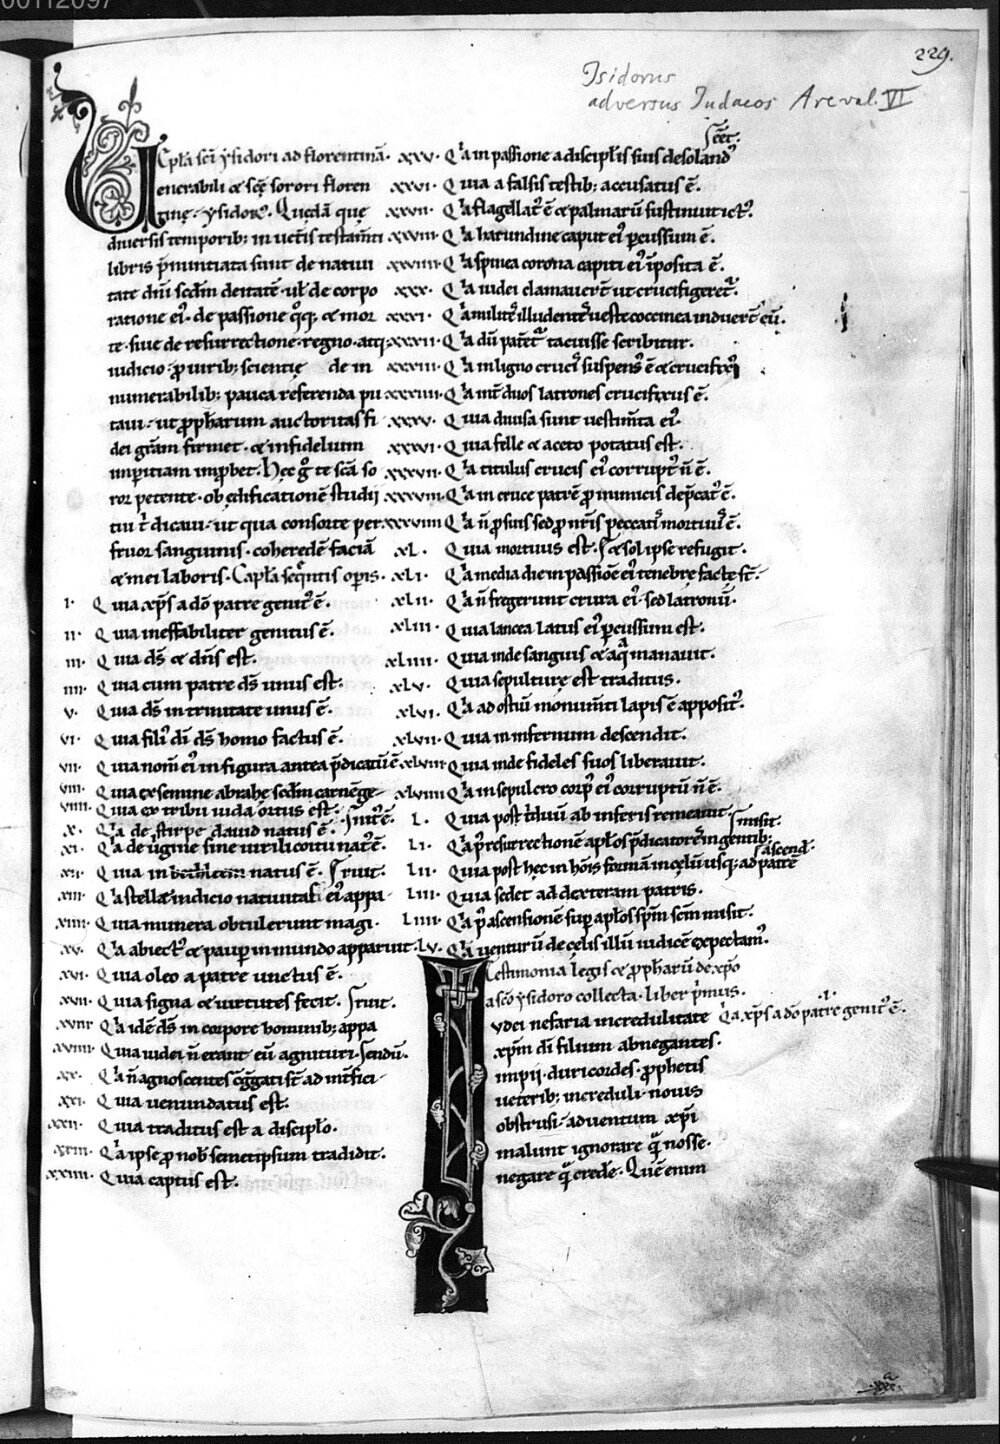 00112097
229.
Isidorus
adversus Iudaeos Areval. VI
Ep̅la sc̅i ysidori ad florentinā.
Venerabili & sc̅ę sorori floren
tinę. ysidorꝰ. Quędā quę
diuersis temporib; in uet̅is testam̅ti
libris p̅nuntiata sunt de natiui
tate dn̅i scd̅m deitatē. ul̕ de corpo
ratione eiꝰ. de passione q̊q; & mor
te. siue de resurrectione. regno. atq;
iudicio. ꝓ uirib; scientię de in
numerabilib; pauca referenda pu
taui. ut ꝓph̅arum auctoritas fi
dei gr̅am firmet. & infidelium
imperitiam inꝓbet. Hęc g̊ te sc̅a so
ror petente. ob ędificationē studii
tui t̕ dicaui. ut qua consorte per
fruor sanguinis. coheredē faciā
& mei laboris. Cap̅la seq̅ntis opis.
I. Quia xp̅s a dō patre genitꝰ ē.
II. Quia ineffabiliter genitus ē.
III. Quia ds̅ & dn̅s est.
IIII. Quia cum patre ds̅ unus est.
V. Quia ds̅ in trinitate unus ē.
VI. Quia filiꝰ di̅ ds̅ homo factus ē.
VII. Quia nom̅ eiꝰ in figura antea p̅dicatū ē.
VIII. Quia ex semine abrahę scd̅m carnē ge
VIIII. Quia ex tribu iuda ortus est. nitꝰ ē.
X. Qa de stirpe dauid natus ē.
XI. Qa de uirgine sine uirili coitu natꝰ ē.
XII. Quia in bethleem natus ē. ruit.
XIII. Qa stellę indicio natiuitas eiꝰ appa
XIIII. Quia munera obtulerunt magi.
XV. Qa abiectꝰ & paup in mundo apparuit.
XVI. Quia oleo a patre unctus ē.
XVII. Quia signa & uirtutes fecit. ruit.
XVIII. Qa idē ds̅ in corpore hominib; appa
XVIIII. Quia iudei n̅ erant eū agnituri. sendū.
XX. Qa n̅ agnoscentes cg̅gati st̅ ad int̅fici
XXI. Quia uenundatus est.
XXII. Quia traditus est a discipl̅o.
XXIII. Qa ipse ꝓ nob̅ semetipsum tradidit.
XXIIII. Quia captus est.
XXV. Qa in passione a discipl̅is suis desolandꝰ
XXVI. Quia a falsis testib; accusatus ē.
XXVII. Qa flagellatꝰ ē & palmarū sustinuit ictꝰ.
XXVIII. Qa harundine caput eiꝰ ꝑcussum ē.
XXVIIII. Qa spinea corona capiti eiꝰ iposita ē.
XXX. Qa iudei clamauer̅t ut crucifigeret̅.
XXXI. Qa milites illudentes ueste coccinea induer̅t eū.
XXXII. Qa dū patet̅ tacuisse scribitur.
XXXIII. Qa in ligno crucis suspensꝰ ē & crucifixꝰ
XXXIIII. Qa int̅ duos latrones crucifixus ē.
XXXV. Quia diuisa sunt uestim̅ta eiꝰ.
XXXVI. Quia felle & aceto potatus est.
XXXVII. Qa titulus crucis eiꝰ corruptꝰ n̅ ē.
XXXVIII. Qa in cruce patrē ꝓ inimicis dep̅catꝰ ē.
XXXVIIII. Qa n̅ ꝓ suis sed ꝓ nr̅is peccatis mortuus ē.
XL. Quia mortuus est. & sol ipse refugit.
XLI. Qa media die in passiōe eiꝰ tenebre factę st̅.
XLII. Qa n̅ fregerunt crura eiꝰ. sed latronū.
XLIII. Quia lancea latus eiꝰ ꝑcussum est.
XLIIII. Quia inde sanguis & aqa manauit.
XLV. Quia sepulturę est traditus.
XLVI. Qa ad ostiū monum̅ti lapis ē appositꝰ.
XLVII. Quia in infernum descendit.
XLVIII. Quia inde fideles suos liberauit.
XLVIIII. Qa in sepulcro corpꝰ eiꝰ corruptū n̅ ē.
L. Quia post triduū ab inferis remeauit. misit.
LI. Qa p̅ resurrectionē apl̅os p̅dicatores in gentib;
LII. Quia post hęc in hois formā in cęlū usq; ad patrē ascend.
LIII. Quia sedet ad dexteram patris.
LIIII. Qa p̅ ascensionē sup apl̅os sp̅m sc̅m misit.
LV. Qa uenturū de cęlis illū iudicē expectamꝰ.
Testimonia legis & ꝓph̅arū de xp̅o
a sc̅o ysidoro collecta. liber p̅mus.
Iudei nefaria incredulitate .I. Qa xp̅s a dō patre genitꝰ ē.
xp̅m di̅ filium abnegantes.
impii. duricordes. ꝓphetis
ueterib; increduli. nouis
obstrusi. aduentum xp̅i
malunt ignorare qa̅ nosse.
negare qa̅ crede̅. Quē enim